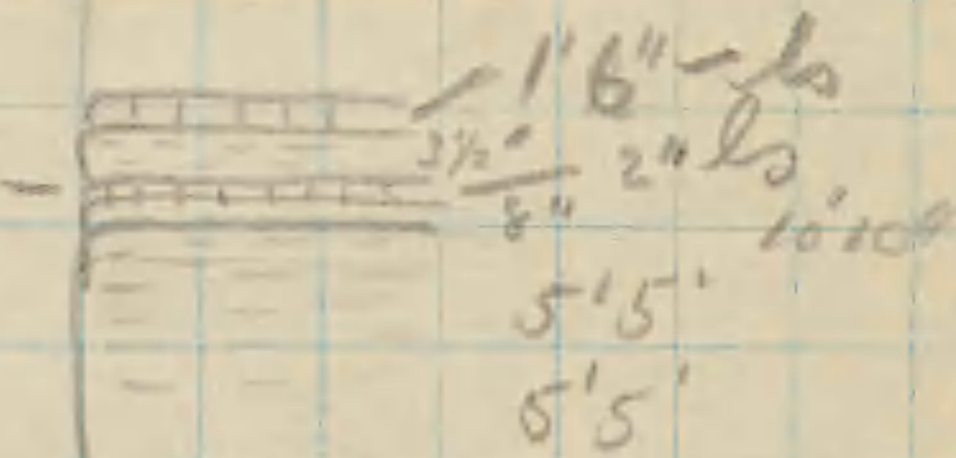 1' 6" - ls
3 1/2" 2" ls
8"
10' 10"
5' 5'
5' 5'